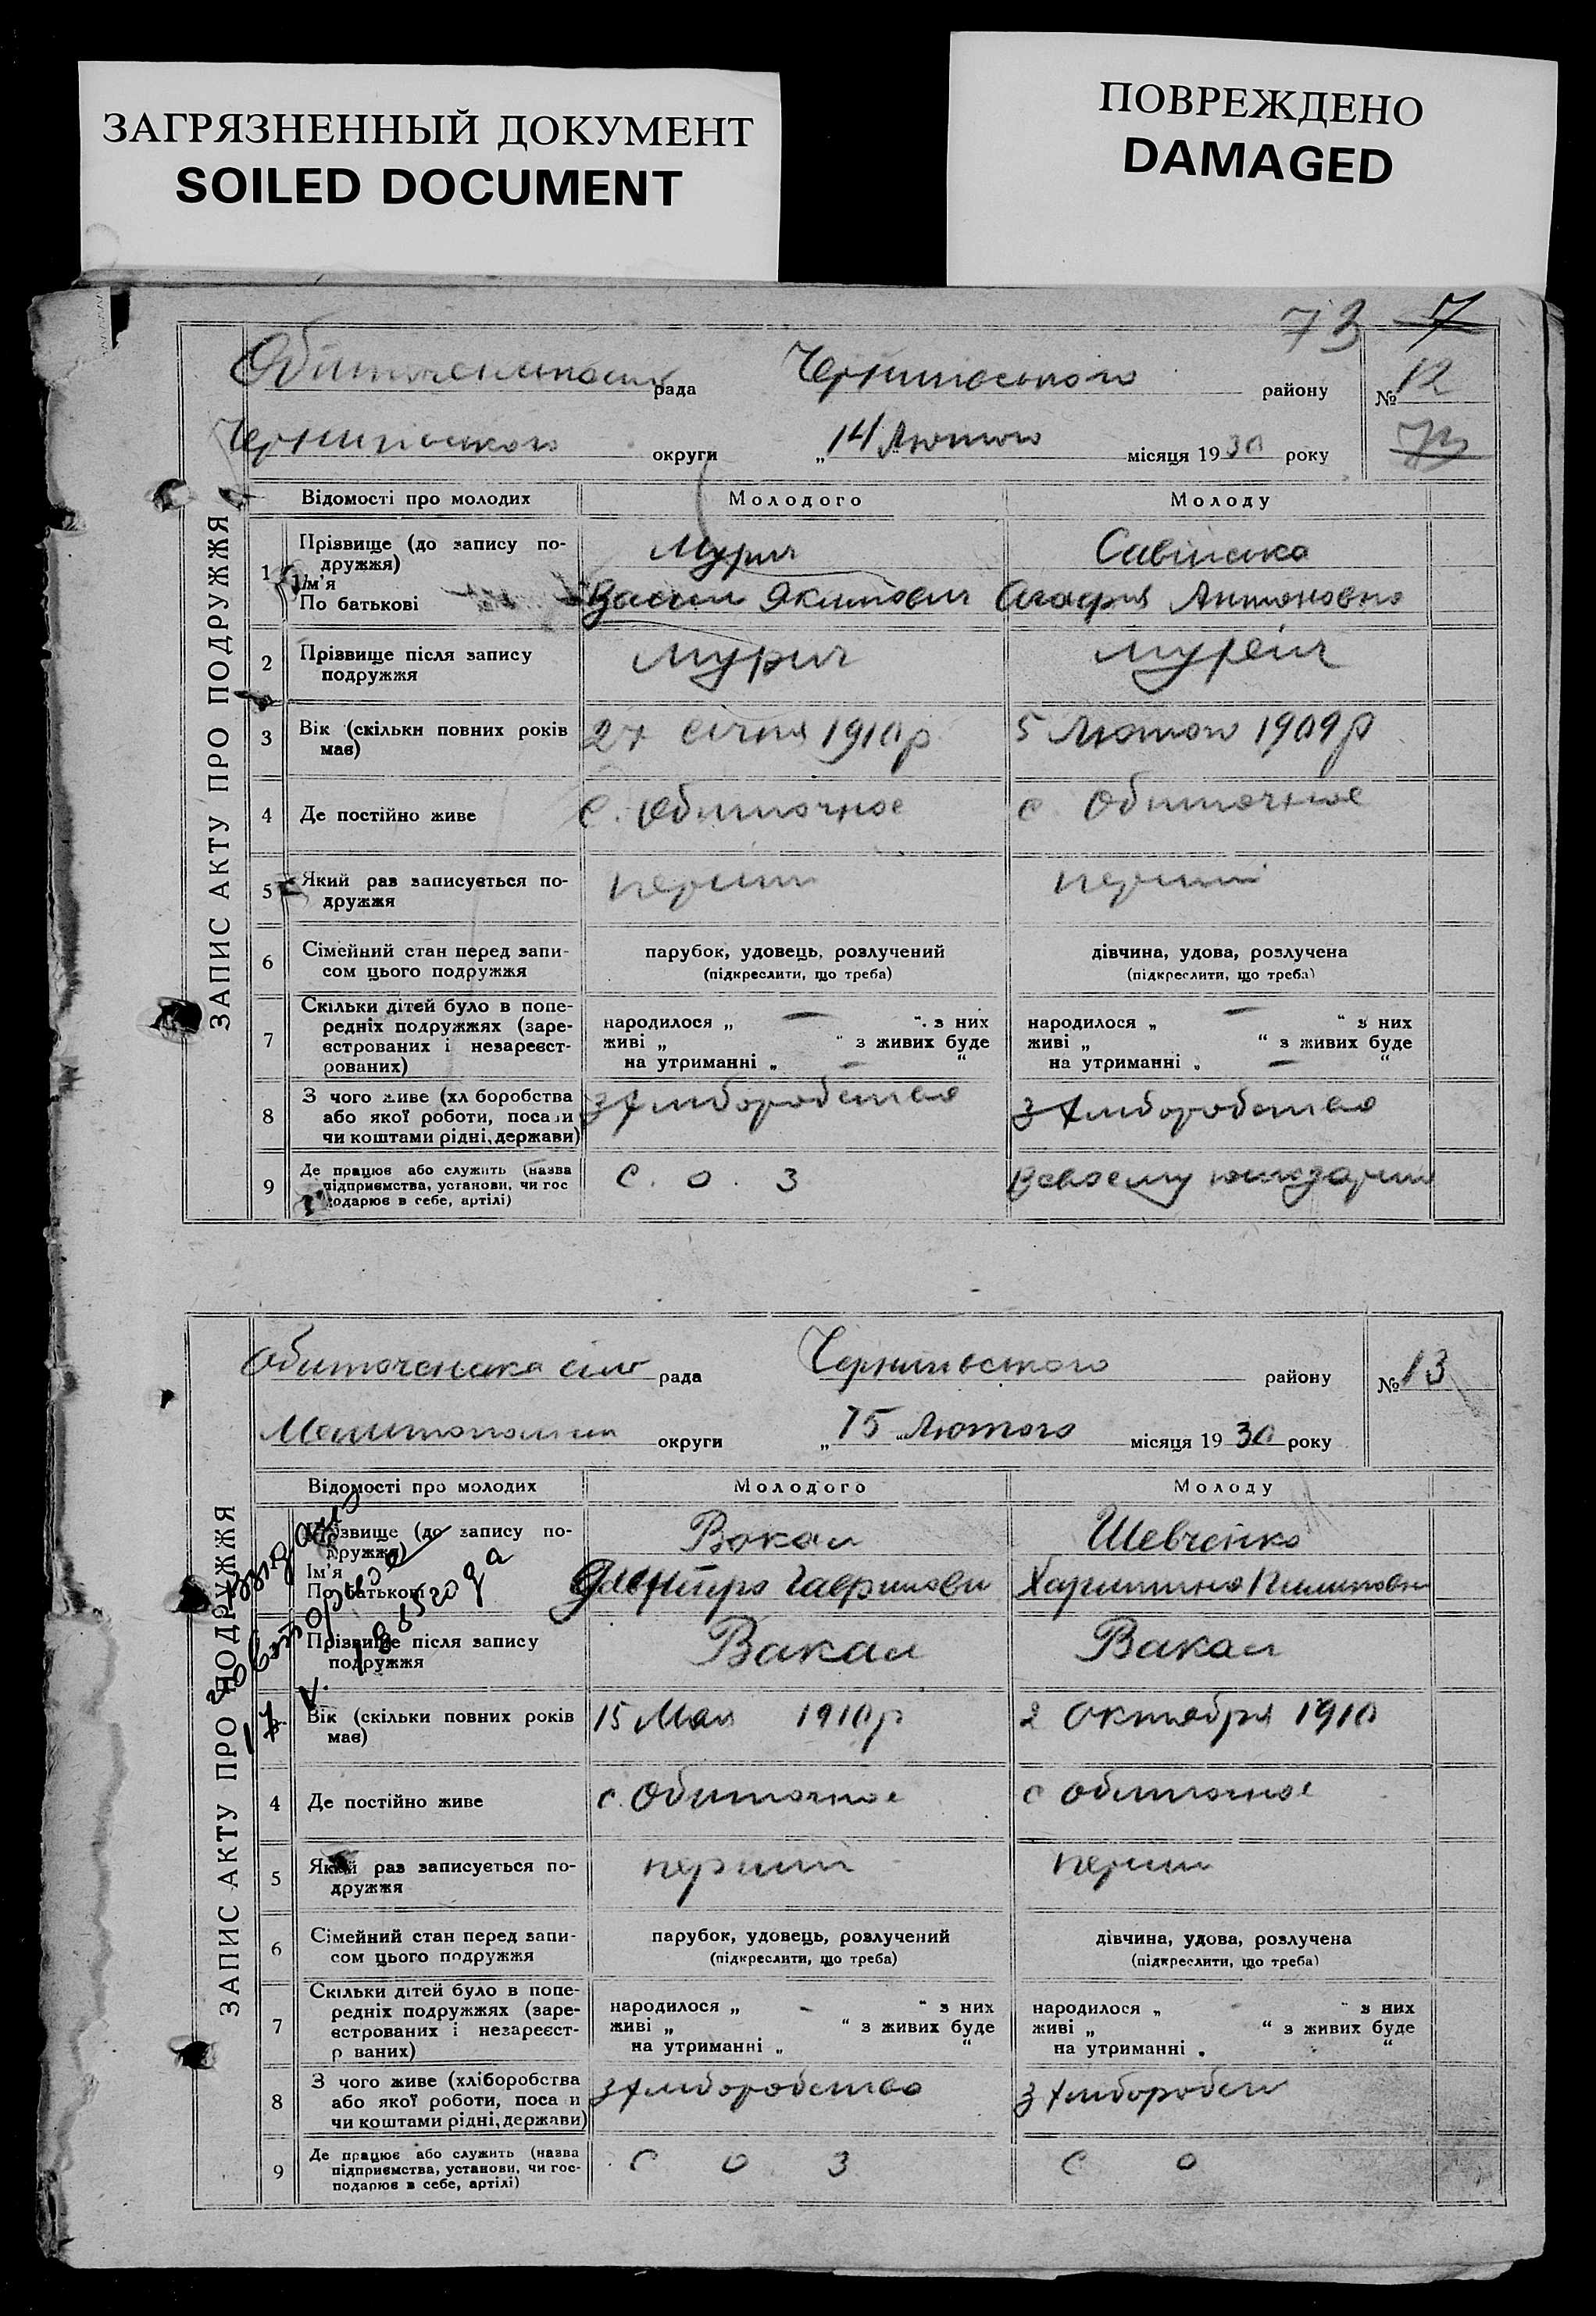 ЗАГРЯЗНЕННЫЙ ДОКУМЕНТ
SOILED DOCUMENT
ПОВРЕЖДЕНО
DAMAGED
73 7
рада Чернигоського району № 12
округи „14 Лютого місяця 1930 року 73
ЗАПИС АКТУ ПРО ПОДРУЖЖЯ
Відомості про молодих Молодого Молоду
1 Прізвище (до запису по-
дружжя)
Ім'я
По батькові
Мурич
Якимович
Антоновна
2 Прізвище після запису
подружжя
Мурич
3 Вік (скільки повних років
має)
27 січня 1910 р
5 Лютого 1909 р
4 Де постійно живе
с. Обиточное
с. Обиточное
5 Який раз записується по-
дружжя
перший
перший
6 Сімейний стан перед запи-
сом цього подружжя
парубок, удовець, розлучений
(підкреслити, що треба)
дівчина, удова, розлучена
(підкреслити, що треба)
7 Скільки дітей було в попе-
редніх подружжях (заре-
єстрованих і незареєст-
рованих)
народилося „ — “ з них
живі „ “ з живих буде
на утриманні „ — “
народилося „ — “ з них
живі „ “ з живих буде
на утриманні „ — “
8 З чого живе (хл боробства
або якої роботи, посади
чи коштами рідні, держави)
з хлиборобства
з хлиборобства
9 Де працює або служить (назва
підприємства, установи, чи гос
подарює в себе, артілі)
С. О. З
Всвоему
Обиточенска рада Чернигівського району № 13
округи „15 Лютого місяця 1930 року
ЗАПИС АКТУ ПРО ПОДРУЖЖЯ
Відомості про молодих Молодого Молоду
Прізвище (до запису по-
дружжя)
Ім'я
По батькові
Вакал
Гаврилови
Шевченко
Прізвище після запису
подружжя
Вакал
Вакал
Вік (скільки повних років
має)
15 Мая 1910 р
2 Октября 1910
4 Де постійно живе
с. Обиточное
с Обиточное
5 Який раз записується по-
дружжя
перший
перший
6 Сімейний стан перед запи-
сом цього подружжя
парубок, удовець, розлучений
(підкреслити, що треба)
дівчина, удова, розлучена
(підкреслити, що треба)
7 Скільки дітей було в попе-
редніх подружжях (заре-
єстрованих і незареєст-
р ваних)
народилося „ - “ з них
живі „ “ з живих буде
на утриманні „ “
народилося „ - “ з них
живі „ “ з живих буде
на утриманні „ “
8 З чого живе (хліборобства
або якої роботи, поса и
чи коштами рідні, держави)
з хлиборобства
з хлиборобств
9 Де працює або служить (назва
підприємства, установи, чи гос-
подарює в себе, артілі)
С О З
С О